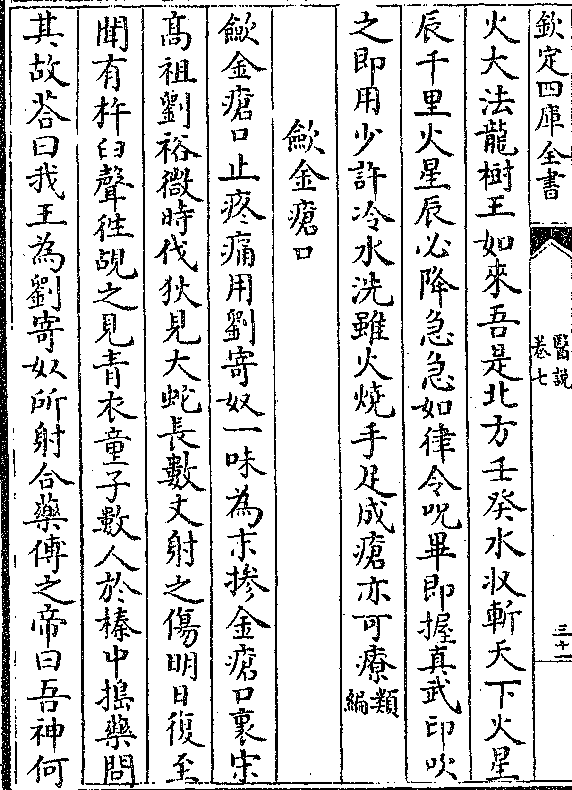 欽定四庫全書
醫說
卷七
三十一
火大法龍樹王如來吾是北方壬癸水収斬天下火星
辰千里火星辰必降急急如律令呪畢即握真武印吹
之即用少許冷水洗雖火燒手足成瘡亦可療類編
歛金瘡口
歛金瘡口止疼痛用劉寄奴一味為末摻金瘡口裏宋
髙祖劉裕微時伐狄見大蛇長數丈射之傷明日復至
聞有杵臼聲徃覘之見青衣童子數人於榛中搗藥問
其故荅曰我王為劉寄奴所射合藥傅之帝曰吾神何